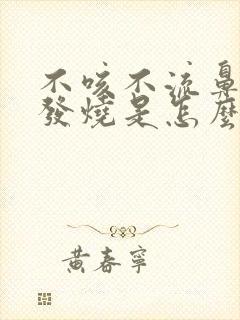 不咳不流鼻
發燒是怎麼
黃春寧